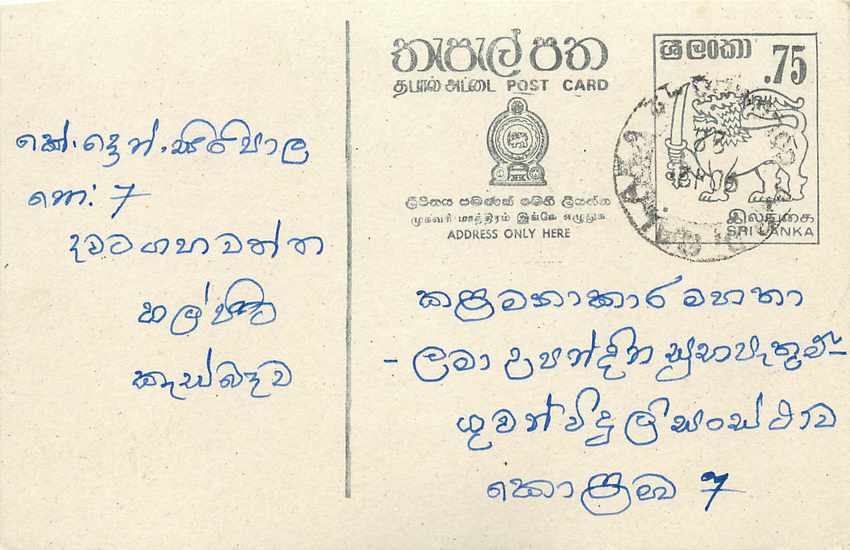 තැපැල් පත
தபால் அட்டை POST CARD
ශ්‍රී ලංකා
.75
ලිපිනය පමණක් මෙහි ලියන්න
முகவரி மாத்திரம் இங்கே எழுதுக
ADDRESS ONLY HERE
இலங்கை
SRI LANKA
කේ. දොන්. සිරිපාල
නො: 7
දවටගහවත්ත
හල්පිට
කැස්බෑව
කළමනාකාර මහතා
- ලමා උපන්දින සුභපැතුම් -
ගුවන් විදුලි සංස්ථාව
කොළඹ 7